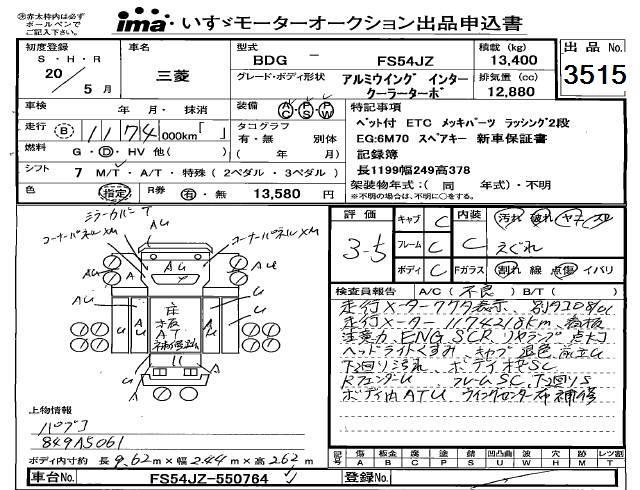 ※赤太枠内は必ず
ボールペンで
ご記入下さい。
ima いすゞモーターオークション出品申込書
初度登録 S・H・R 20年 5月
車名 三菱
型式 BDG － FS54JZ
積載(kg) 13,400
出品No. 3515
グレード・ボディ形状 アルミウイング インタークーラーターボ
排気量(cc) 12,880
車検 年 月・抹消
装備 AC PS PW
特記事項
走行 B 1174 000km「 」
タコグラフ 有・無 別体 ( 年 月)
ベット付 ETC メッキパーツ ラッシング2段
EG:6M70 スペアキー 新車保証書
燃料 G・D・HV 他( )
記録簿
シフト 7 M/T・A/T・特殊(2ペダル・3ペダル)
長1199幅249高378
色 指定
R券 有・無 13,580 円
架装物年式:( 同 年式)・不明
※不明の場合は、不明に○をする。
評価 3-5
キャブ C
フレーム C
ボディ C
内装 C
汚れ 破れ ヤケ スレ
えぐれ
Fガラス 割れ 線 点傷 イバリ
検査員報告 A/C( 不良 ) B/T( )
ミラーカバー T
コーナーパネル×M
コーナーパネル×M
AU
AU
A
U
走行メーター
走行メーター 1174218km 看板
注意力 ENG SCR リヤランプ 点灯
ヘッドライトくすみ キャブ 退色
下回り汚れ ボディ枠SC
RフェンダーU フレームSC 下回りS
ボディ内ATU ウイングセンター布補修
床
板
AT
補修込み
上物情報
パブコ
849A5061
ボディ内寸約 長 9.62 m×幅 2.44 m×高 2.62 m
記号 傷A 板金B 腐C 塗P 錆S 凹凸曲U 波W 穴H 跡M 跡T レツ割T
車台No. FS54JZ-550764
登録No.